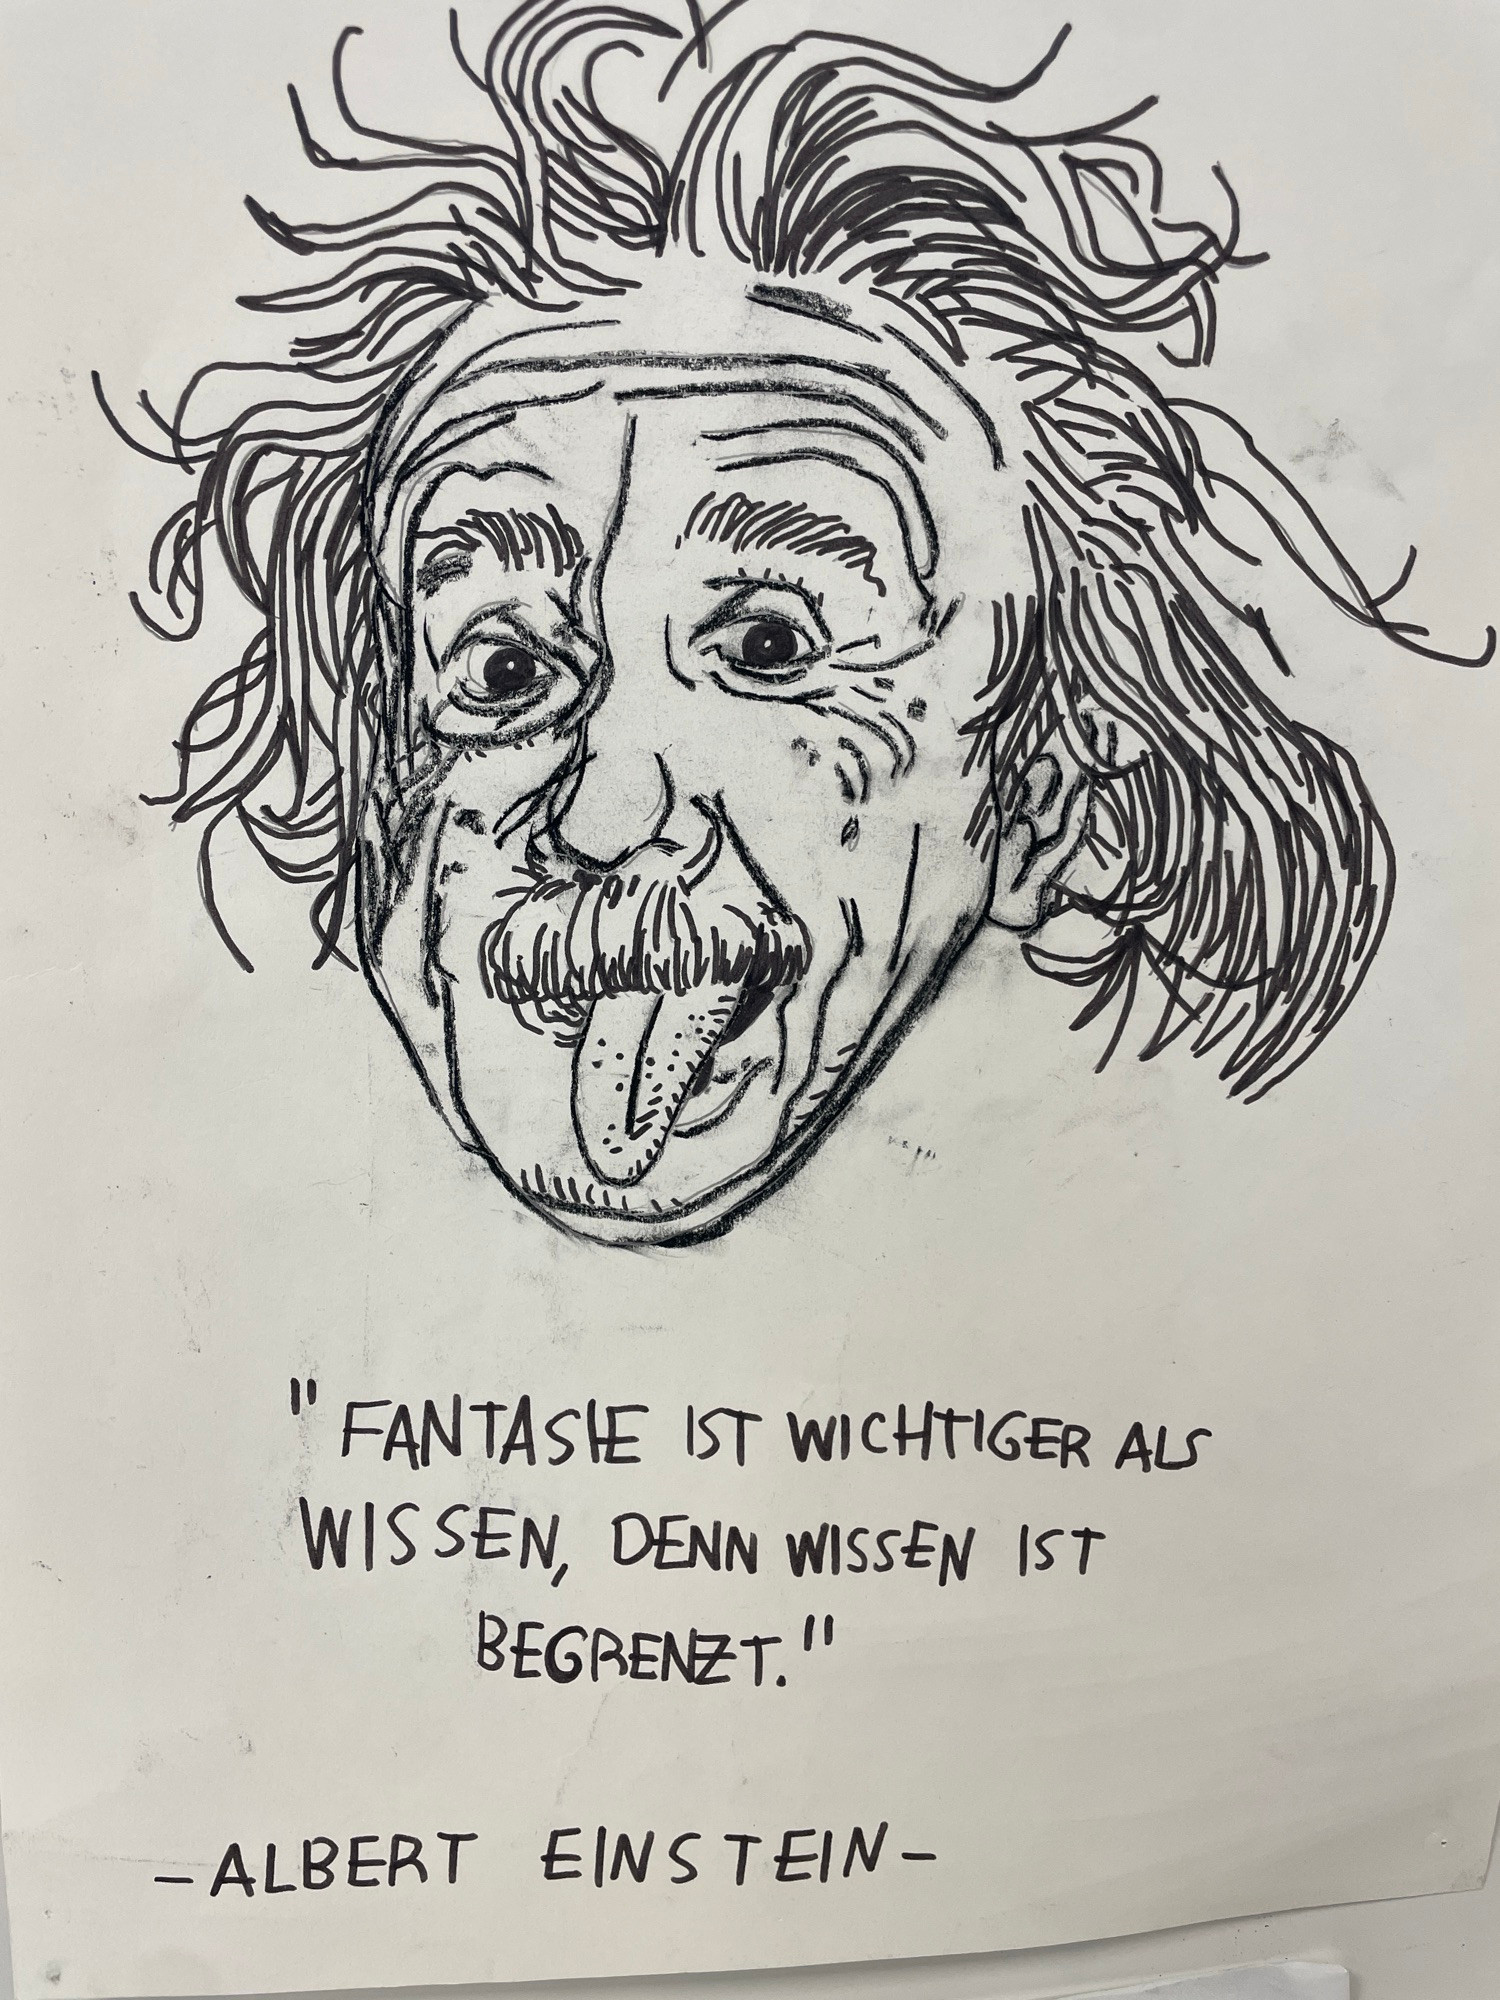 "FANTASIE IST WICHTIGER ALS
WISSEN, DENN WISSEN IST
BEGRENZT."
-ALBERT EINSTEIN-